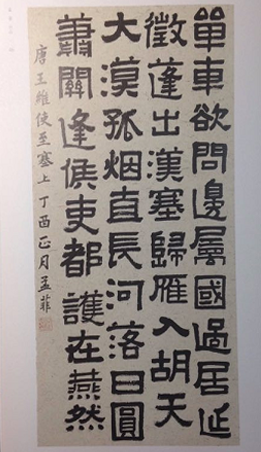 單車欲問邊屬國過居延
徵蓬出漢塞歸雁入胡天
大漠孤烟直長河落日圓
蕭關逢侯吏都護在燕然
唐王維使至塞上丁酉正月孟菲